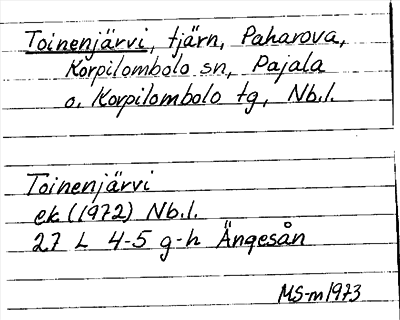 Toinenjärvi, tjärn, Paharova,
Korpilombolo sn, Pajala
o. Korpilombolo tg, Nb.l.
Toinenjärvi
ek (1972) Nb.l.
27 L 4-5 g-h Ängesån
MS-m 1973